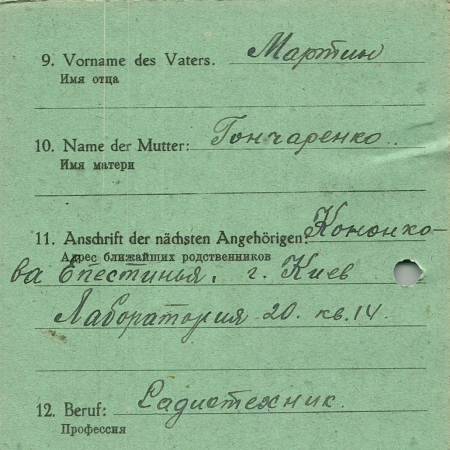 9. Vorname des Vaters. Мартин
Имя отца
10. Name der Mutter: Гончаренко.
Имя матери
11. Anschrift der nächsten Angehörigen: Кононко-
Адрес ближайших родственников
ва Епестинья, г. Киев
Лаборатория 20. кв. 14.
12. Beruf: Радиотехник.
Профессия